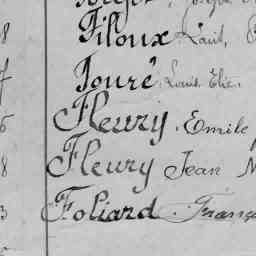 8 Filoux Louis,
Fouré, Louis Elie.
Fleury, Emile
8 Fleury Jean M
3 Foliard, Franç